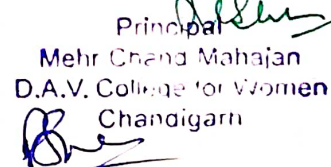 Principal
Mehr Chand Mahajan
D.A.V. College for Women
Chandigarh